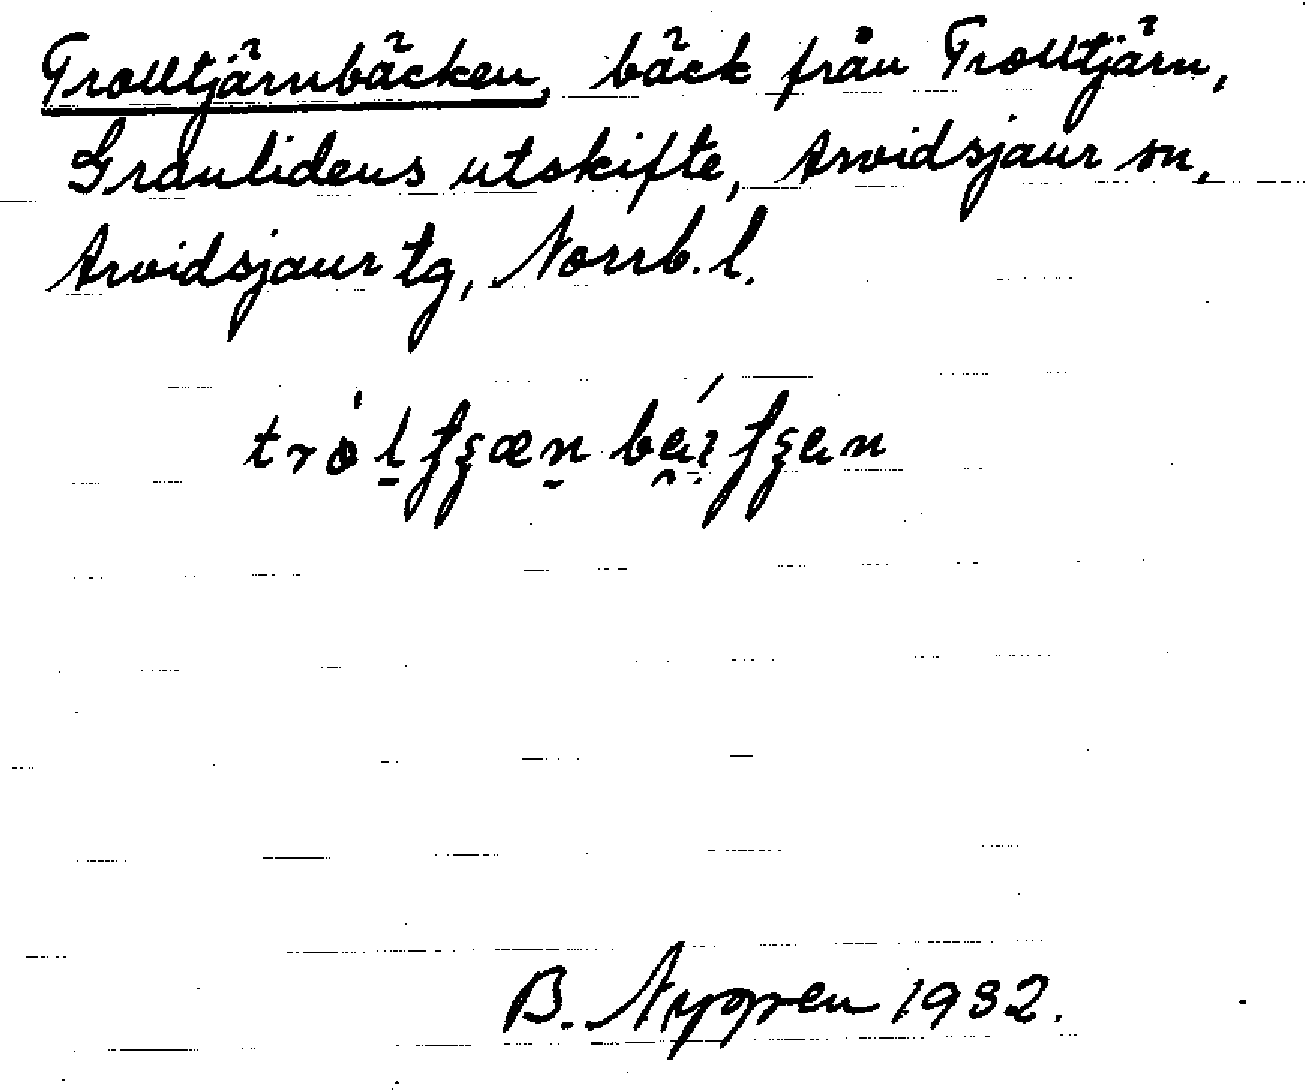 Trolltjärnbäcken, bäck från Trolltjärn,
Granlidens utskifte, Arvidsjaur sn,
Arvidsjaur tg, Norrb. l.
B. Nygren 1932.